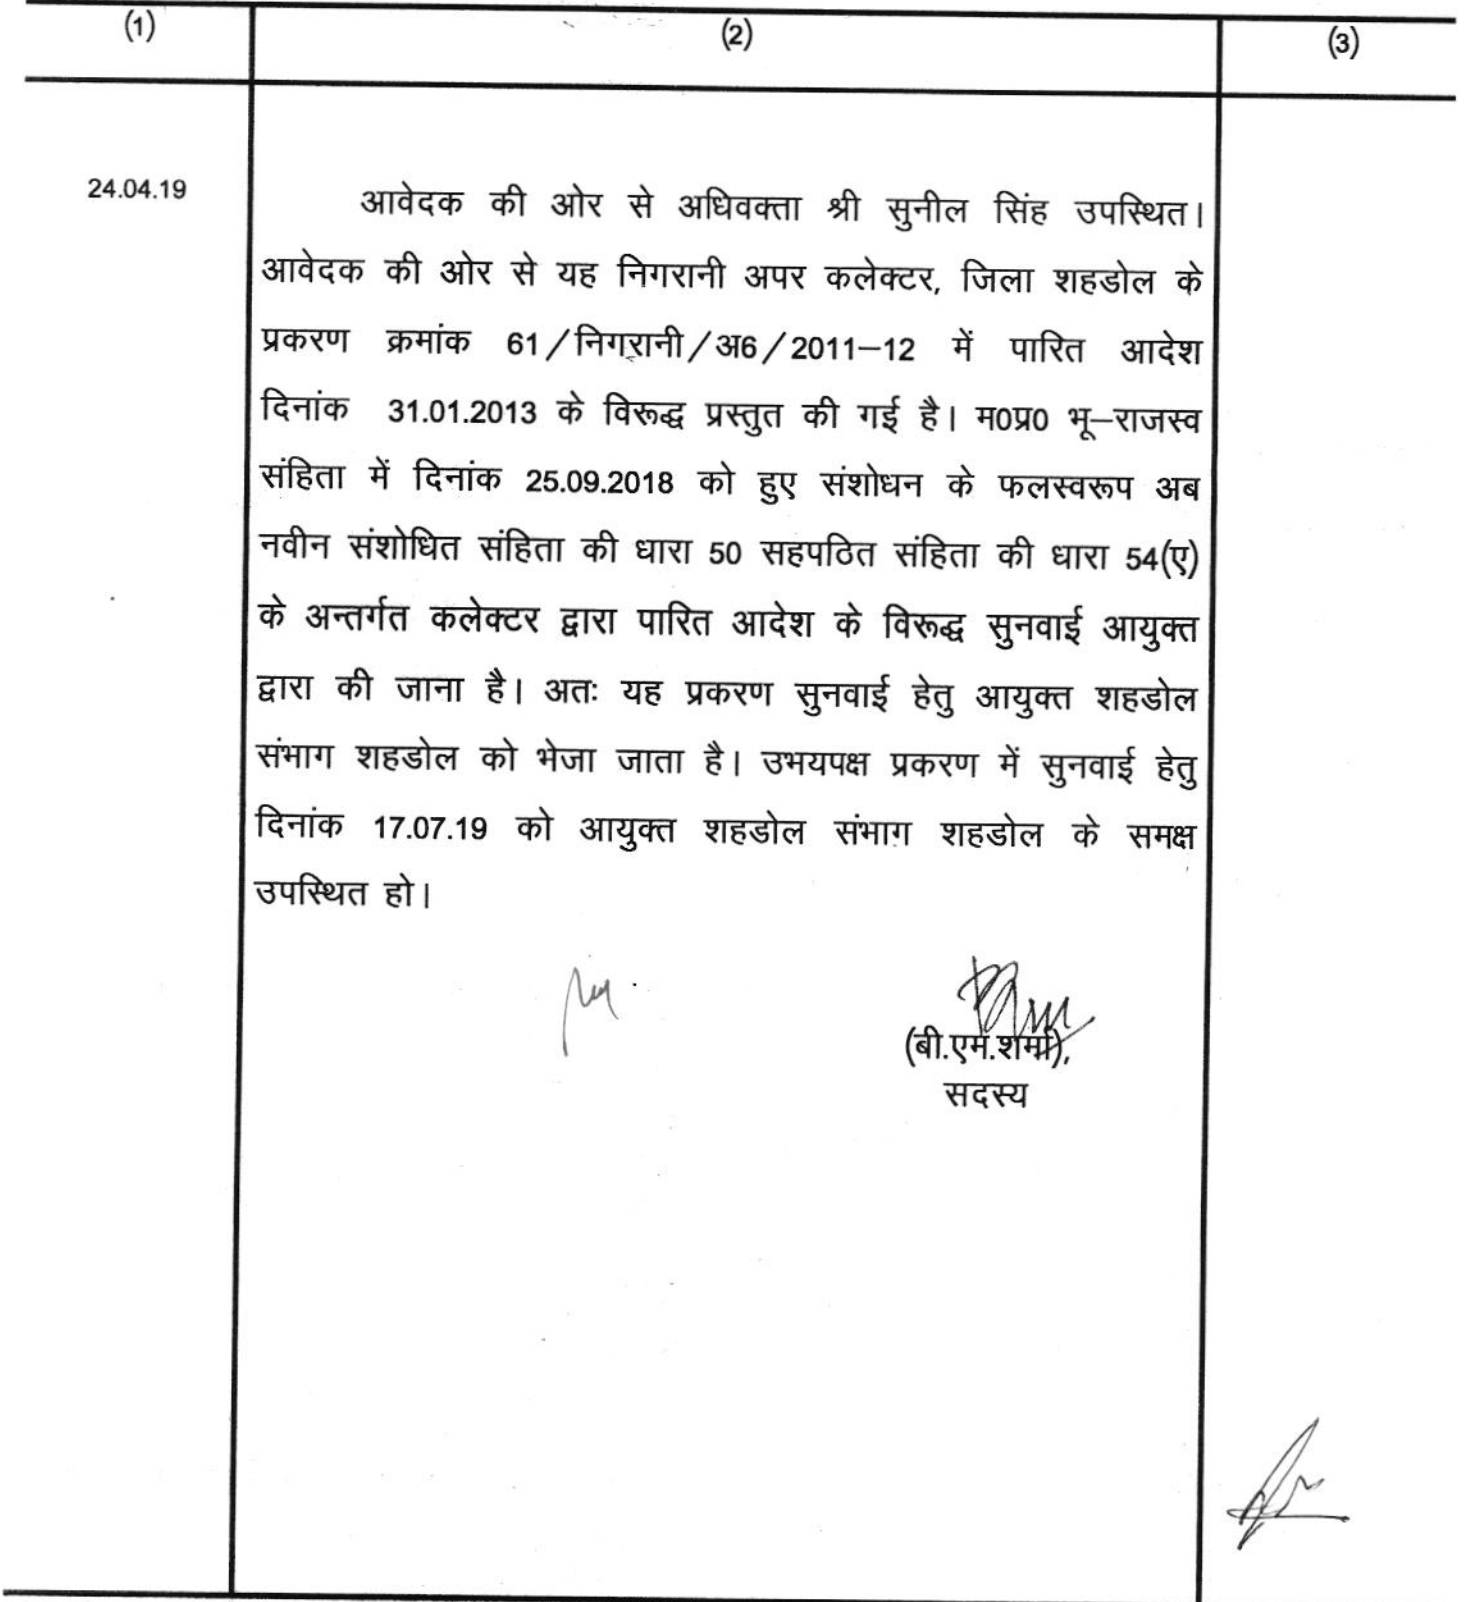 (1) (2) (3)
24.04.19 आवेदक की ओर से अधिवक्ता श्री सुनील सिंह उपस्थित।
आवेदक की ओर से यह निगरानी अपर कलेक्टर, जिला शहडोल के
प्रकरण क्रमांक 61/निगरानी/अ6/2011–12 में पारित आदेश
दिनांक 31.01.2013 के विरूद्ध प्रस्तुत की गई है। म0प्र0 भू–राजस्व
संहिता में दिनांक 25.09.2018 को हुए संशोधन के फलस्वरूप अब
नवीन संशोधित संहिता की धारा 50 सहपठित संहिता की धारा 54(ए)
के अन्तर्गत कलेक्टर द्वारा पारित आदेश के विरूद्ध सुनवाई आयुक्त
द्वारा की जाना है। अतः यह प्रकरण सुनवाई हेतु आयुक्त शहडोल
संभाग शहडोल को भेजा जाता है। उभयपक्ष प्रकरण में सुनवाई हेतु
दिनांक 17.07.19 को आयुक्त शहडोल संभाग शहडोल के समक्ष
उपस्थित हो।
(बी.एम.शर्मा),
सदस्य